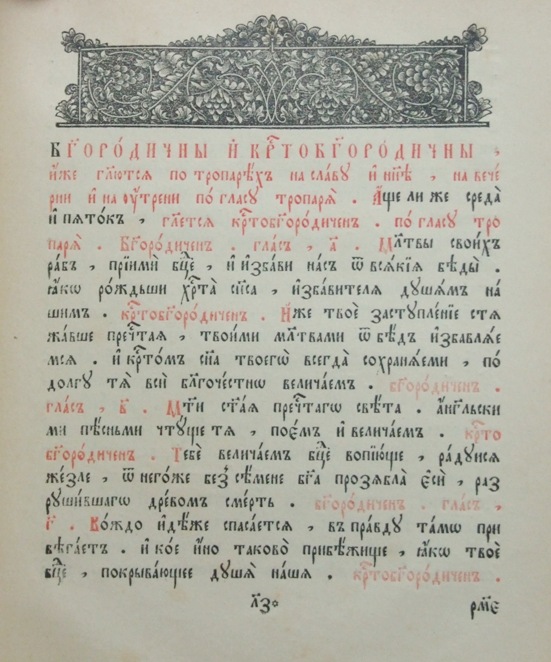 Бг҃оро́дичны и҆ крⷭ҇тобг҃оро́дичны ,
и҆́же гл҃ются по тропарѣ́хъ на сла́ву и҆ нн҃ѣ , на вече́
рни и҆ на ѹ҆́трени по́ гласу тропаря̀ . А҆́ще ли же среда̀
и҆ пято́къ , гл҃ется крⷭ҇тобг҃оро́диченъ . по́ гласу тро
паря̀ . Бг҃оро́диченъ . гла́съ , а҃ . Мл҃твы свои́хъ
ра́бъ , прїимѝ бц҃е , и҆ и҆зба́ви на́съ ѿ вся́кїѧ бѣды̀ .
ꙗ҆́кѡ ро́ждьши хрⷭ҇та̀ сп҃са , и҆зба́вителѧ душа́мъ на́
шимъ . крⷭ҇тобг҃оро́диченъ . И҆́же твоѐ заступле́нїе стѧ
жа́вше преч҇тая , твои́ми мл҃твами ѿ бѣ́дъ и҆збавлѧ́е
мсѧ . и҆ крⷭ҇то́мъ сн҃а твоегѡ̀ всегда̀ сохранѧ́еми , по
до́лгу тѧ̀ всѝ бл҃гоче́стнѡ велича́емъ . бг҃оро́диченъ .
гла́съ , в҃ . Мт҃и ст҃а́ѧ преч҇тагѡ свѣ́та . а҆́нг҃льски
ми пѣ́сньми чту́ще тѧ , пое́мъ и҆ велича́емъ . крⷭ҇то
бг҃оро́диченъ . Тебѐ велича́емъ бц҃е вопїю́ще , ра́дуисѧ
же́зле , ѿ него́же без̾ сѣ́мене бг҃а прозѧблà є҆сѝ , раз
руши́вшагѡ дре́вомъ сме́рть . бг҃оро́диченъ . гла́съ ,
г҃ . Ко́ждо и҆дѣ́же спаса́етсѧ , въ пра́вду та́мѡ при
бѣга́етъ . и҆ ко́е и҆́но таково̀ прибѣ́жище , ꙗ҆́кѡ твоѐ
бц҃е , покрыва́ющее душа̀ на́ша . крⷭ҇тобг҃оро́диченъ .
рм҃є